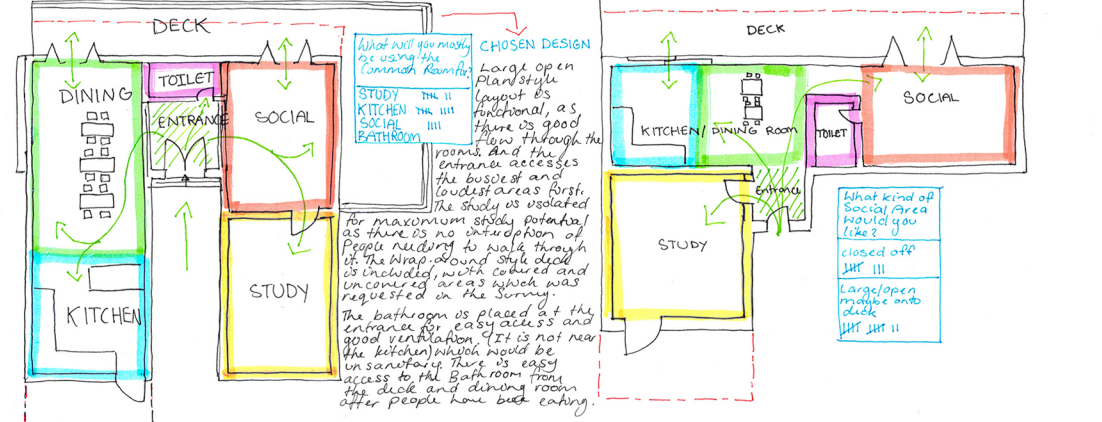 DECK
TOILET
DINING
ENTRANCE
SOCIAL
STUDY
KITCHEN
What will you mostly
be using the
Common Room for?
STUDY 卌 ||
KITCHEN 卌 ||||
SOCIAL ||||
BATHROOM
CHOSEN DESIGN
Large open
plan style
layout is
functional, as
there is good
flow through the
rooms. And the
entrance accesses
the busiest and
loudest areas first.
The study is isolated
for maximum study potential
as there is no interoption of
People needing to walk through
it. The wrap-around style deck
is included, with covered and
uncovered areas which was
requested in the survey.
The bathroom is placed at the
entrance for easy access and
good ventilation. (It is not near
the kitchen) which would be
unsanitary. There is easy
access to the Bathroom from
the deck and dining room
after people have been eating.
DECK
KITCHEN/ DINING ROOM
TOILET
SOCIAL
Entrance
STUDY
What kind of
Social Area
would you
like?
closed off
卌 |||
Large/open
maybe onto
deck
卌 卌 ||